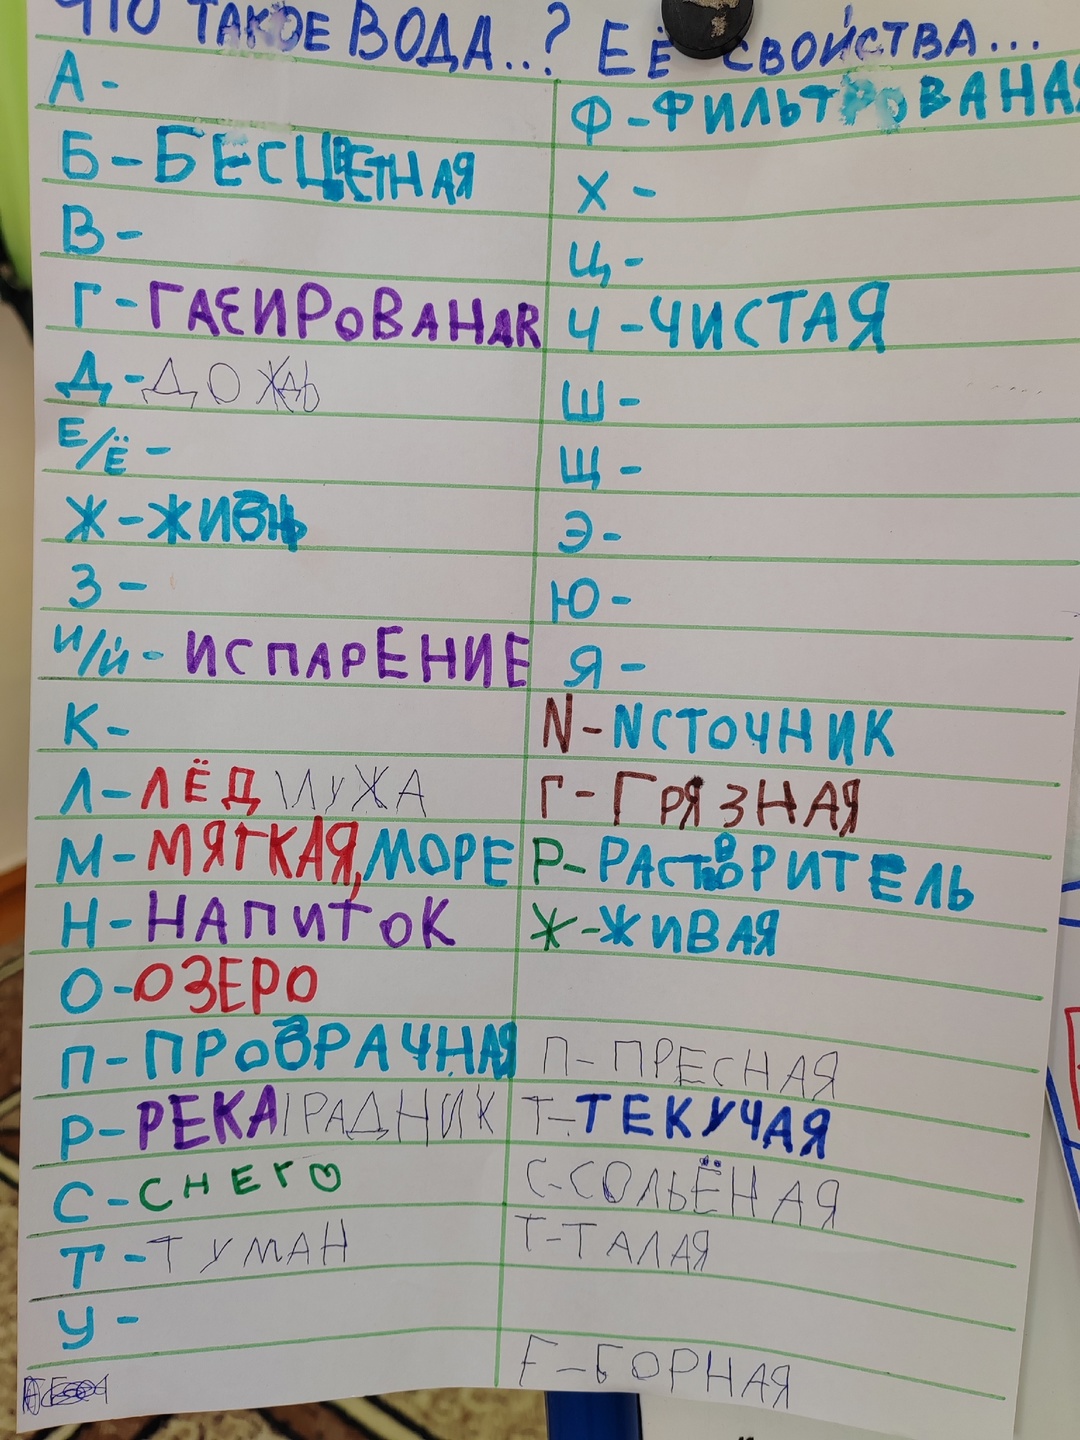 ЧТО ТАКОЕ ВОДА...? ЕЁ СВОЙСТВА...
А -
Б - БЕСЦВЕТНАЯ
В -
Г - ГАЗИРОВАНАЯ
Д - ДОЖДЬ
Е/Ё -
Ж - ЖИЗНЬ
З -
И/Й - ИСПАРЕНИЕ
К -
Л - ЛЁД ЛУЖА
М - МЯГКАЯ, МОРЕ
Н - НАПИТОК
О - ОЗЕРО
П - ПРОЗРАЧНАЯ
Р - РЕКА РАДНИК
С - СНЕГ
Т - ТУМАН
У -
Ф - ФИЛЬТРОВАНАЯ
Х -
Ц -
Ч - ЧИСТАЯ
Ш -
Щ -
Э -
Ю -
Я -
И - ИСТОЧНИК
Г - ГРЯЗНАЯ
Р - РАСТВОРИТЕЛЬ
Ж - ЖИВАЯ
П - ПРЕСНАЯ
Т - ТЕКУЧАЯ
С - СОЛЬЁНАЯ
Т - ТАЛАЯ
Г - ГОРНАЯ